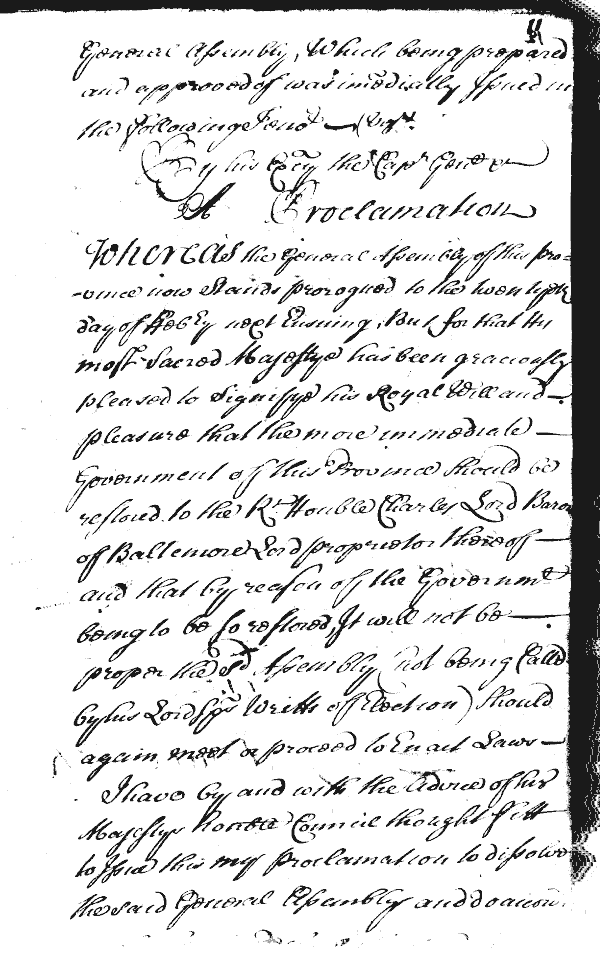 General Assembly, Which being prepared
and approved of was imedially Issued in
the following
By his Exc͠y the Capt Genll
A Proclamation
Whereas the General Assembly of this pro=
-vince now Stands prorogued to the twentyeth
day of Febry next Ensuing, But for that His
most Sacred Majestye has been graciously
pleased to Signifye his Royal Will and
pleasure that the more immediate
Government of this Province Should be
restored to the Rt Honble Charles Lord Baron
of Baltemore Lord proprietor thereof
and that by reason of the Governmt
being to be so restored, It will not be
proper the Sd Assembly (not being Called
by his Lordsps Writts of Election) Should
again meet or proceed to Enact Laws
I have by and with the Advice of his
Majestys honble Council thought fitt
to Issue this my Proclamation to dissolve
the said General Assembly and do